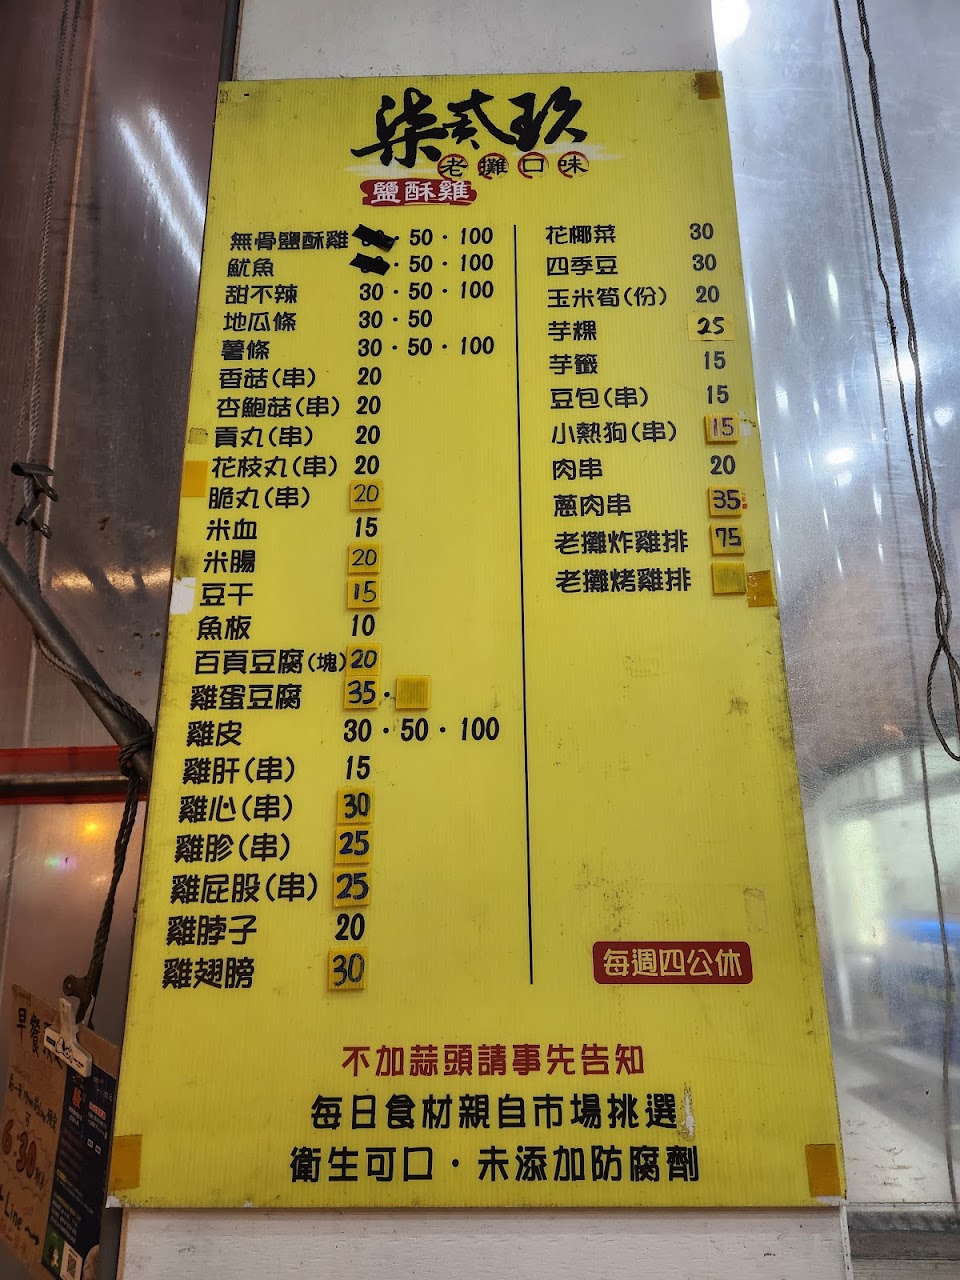 柒貳玖
老攤口味
鹽酥雞
無骨鹽酥雞 · 50 · 100
魷魚 · 50 · 100
甜不辣 30 · 50 · 100
地瓜條 30 · 50
薯條 30 · 50 · 100
香菇(串) 20
杏鮑菇(串) 20
貢丸(串) 20
花枝丸(串) 20
脆丸(串) 20
米血 15
米腸 20
豆干 15
魚板 10
百頁豆腐(塊) 20
雞蛋豆腐 35 ·
雞皮 30 · 50 · 100
雞肝(串) 15
雞心(串) 30
雞胗(串) 25
雞屁股(串) 25
雞脖子 20
雞翅膀 30
花椰菜 30
四季豆 30
玉米筍(份) 20
芋粿 25
芋籤 15
豆包(串) 15
小熱狗(串) 15
肉串 20
蔥肉串 35
老攤炸雞排 75
老攤烤雞排
每週四公休
不加蒜頭請事先告知
每日食材親自市場挑選
衛生可口 · 未添加防腐劑
早餐
6.30
Line